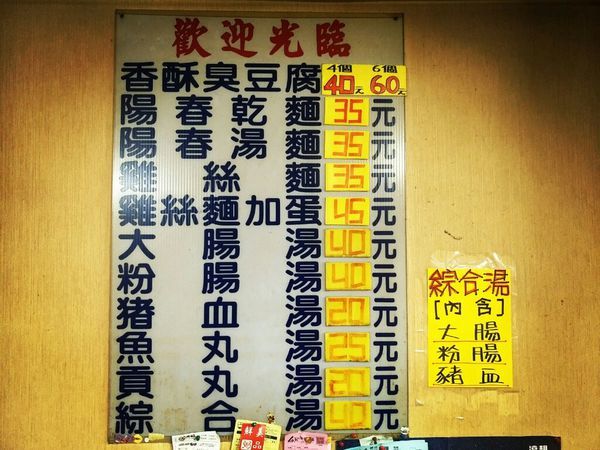 歡迎光臨
香酥臭豆腐 4個 40元 6個 60元
陽春乾麵 35元
陽春湯麵 35元
雞絲麵 35元
雞絲麵加蛋 45元
大腸湯 40元
粉腸湯 40元
猪血湯 20元
魚丸湯 25元
貢丸湯 20元
綜合湯 40元
綜合湯
[內含]
大腸
粉腸
豬血